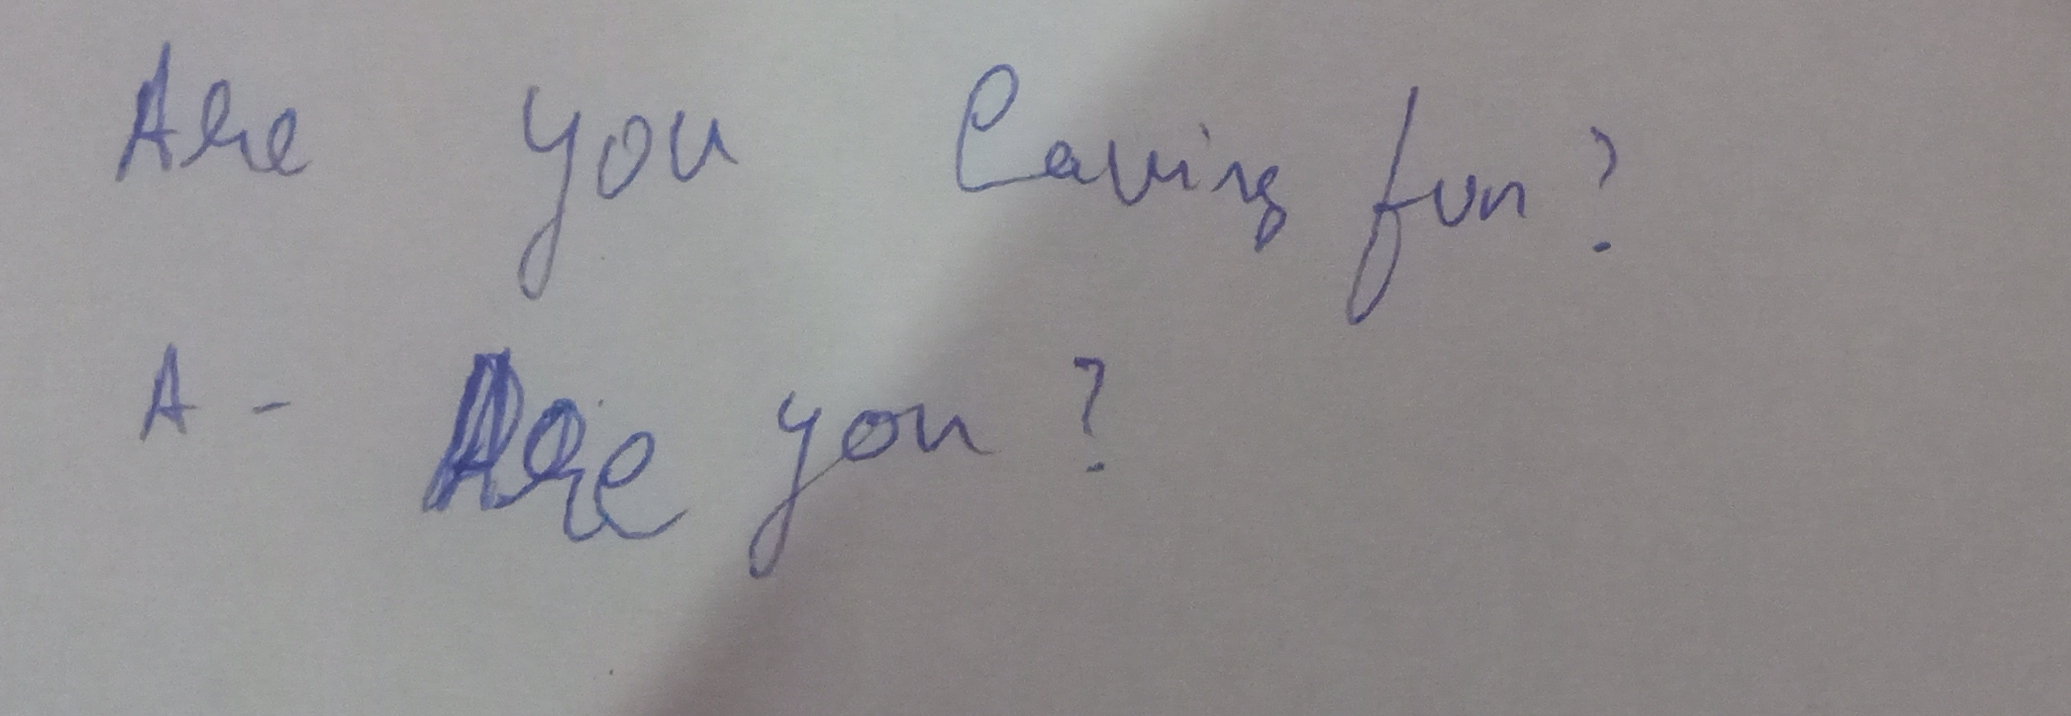 Are you having fun?
A - Are you?